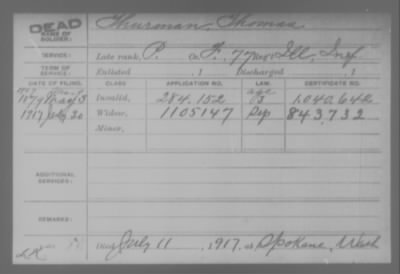 DEAD
NAME OF SOLDIER: Thurman, Thomas
SERVICE: Late rank, P. Co. F, 77 Reg't Ill. Inf.
TERM OF SERVICE: Enlisted , 1 Discharged , 1
DATE OF FILING. CLASS. APPLICATION NO. CERTIFICATE NO.
1879 3 Invalid, 284.152 1.040.642
1917 July 20 Widow, 1105147 843,732
Minor,
ADDITIONAL SERVICES:
REMARKS:
Died July 11, 1917, at Spokane, Wash